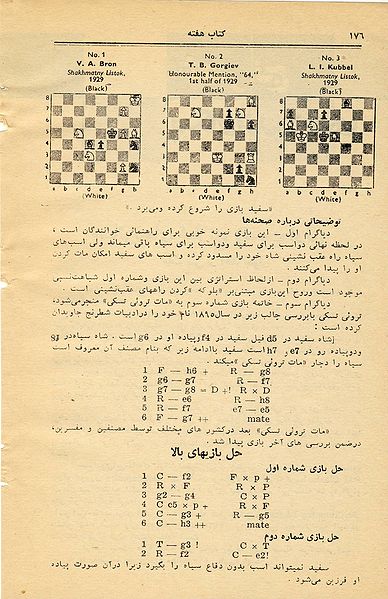 ۱۷۶
کتاب هفته
No. 1
V. A. Bron
Shakhmatny Listok,
1929
(Black)
8
7
6
5
4
3
2
1
a b c d e f g h
(White)
No. 2
T. B. Gorgiev
Honourable Mention, "64,"
1st half of 1929
(Black)
8
7
6
5
4
3
2
1
a b c d e f g h
(White)
No. 3
L. I. Kubbel
Shakhmatny Listok,
1929
(Black)
8
7
6
5
4
3
2
1
a b c d e f g h
(White)
«سفید بازی را شروع کرده ومیبرد.»
توضیحاتی درباره صحنه‌ها
دیاگرام اول - این بازی نمونه خوبی برای راهنمائی خوانندگان است،
در لحظه نهائی دواسب برای سفید ودواسب برای سیاه باقی میماند ولی اسبهای
سیاه راه عقب نشینی شاه خود را مسدود کرده و اسب های سفید امکان مات کردن
او را پیدا می‌کنند.
دیاگرام دوم - ازلحاظ استراتژی بین این بازی وشماره اول شباهت‌نسبی
موجود است وروح این‌بازی مبتنی‌بر «بلوکه» کردن راههای عقب‌نشینی است.
دیاگرام سوم - خاتمه بازی شماره سوم به «مات تروئی تسکی» منجرمی‌شود،
تروئی تسکی بابررسی جالب زیر درسال ۱۸۹۵ نام خود را درادبیات شطرنج جاویدان
کرده است:
(شاه سفید در d5 فیل سفید در f4 وپیاده او در g6 است. شاه سیاه‌در g8
ودوپیاده رو در e7 و h7 است سفید باادامه زیر که بنام مصنف آن معروف است
سیاه را دچار «مات تروئی تسکی» میکند.)
1 F — h6 + R — g8
2 g6 — g7 R — f7
3 g7 — g8 = D +! R × D
4 R — e6 R — h8
5 R — f7 e7 — e5
6 F — g7 ++ mate
«مات تروئی تسکی» بعد درکشور های مختلف توسط مصنفین و مفسرین،
درضمن بررسی های آخر بازی پیدا شد.
حل بازیهای بالا
حل بازی شماره اول
1 C — f2 F × p +
2 R × F C × P
3 g2 — g4 C × P
4 C e5 × p + R × F
5 C — g3 + R — g5
6 C — h3 ++ mate
حل بازی شماره دوم
1 T — g3 ! C × T
2 R — f2 C — e2!
سفید نمیتواند اسب بدون دفاع سیاه را بگیرد زیرا درآن صورت پیاده
او فرزین می‌شود.